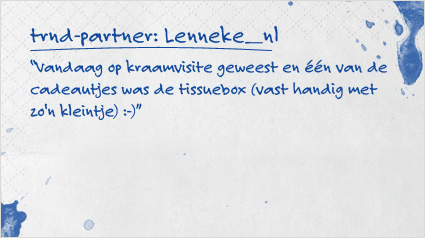 trnd-partner: Lenneke__nl
"Vandaag op kraamvisite geweest en één van de
cadeautjes was de tissuebox (vast handig met
zo'n kleintje) :-)"